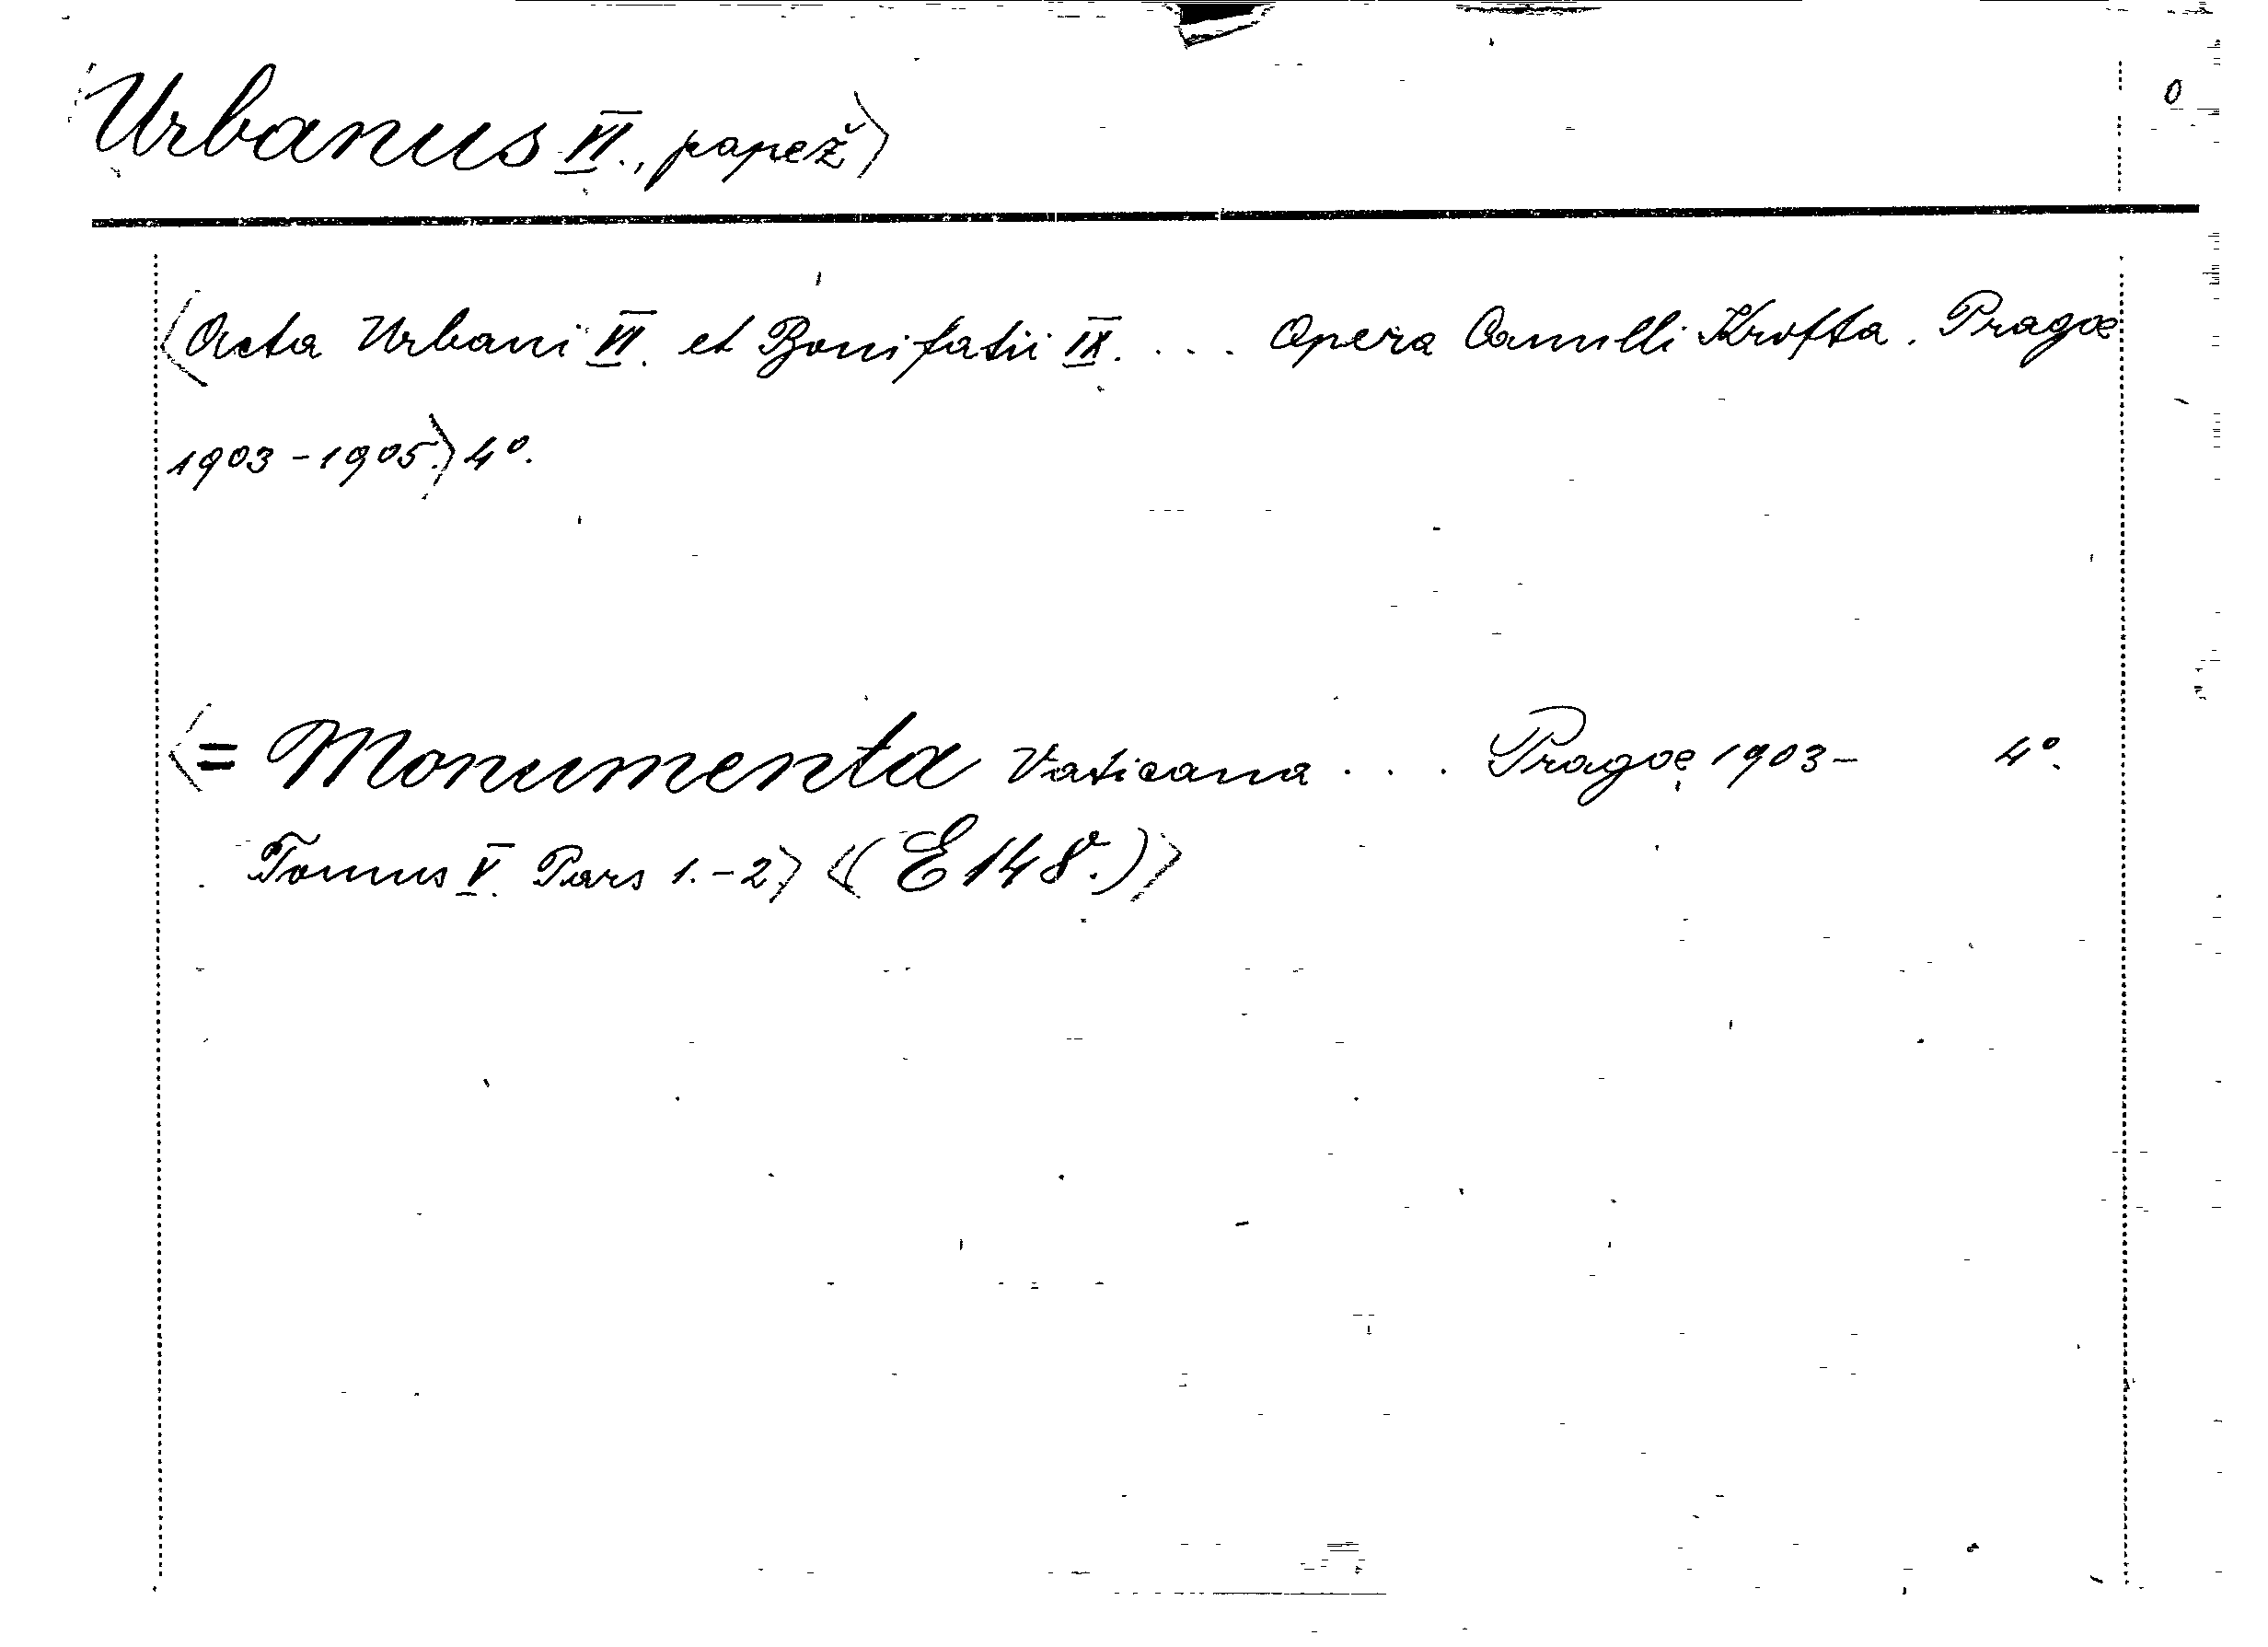 ⟨Urbanus VI., papež⟩ 0
⟨Acta Urbani VI. et Bonifatii IX. ... Opera Camilli Krofta. Pragæ
1903-1905.⟩ 4°.
⟨= Monumenta Vaticana ... Pragæ 1903- 4°.
Tomus V. Pars 1.-2⟩ ⟨(E 148.)⟩